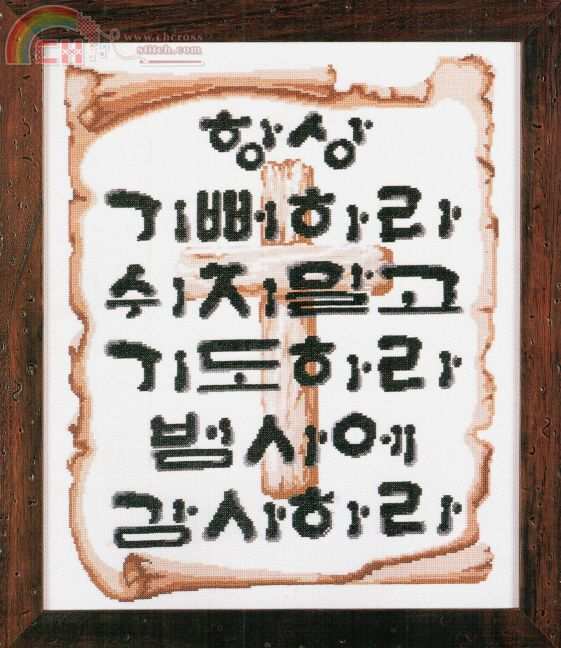 www.chcross
stitch.com
항상
기뻐하라
쉬지말고
기도하라
범사에
감사하라